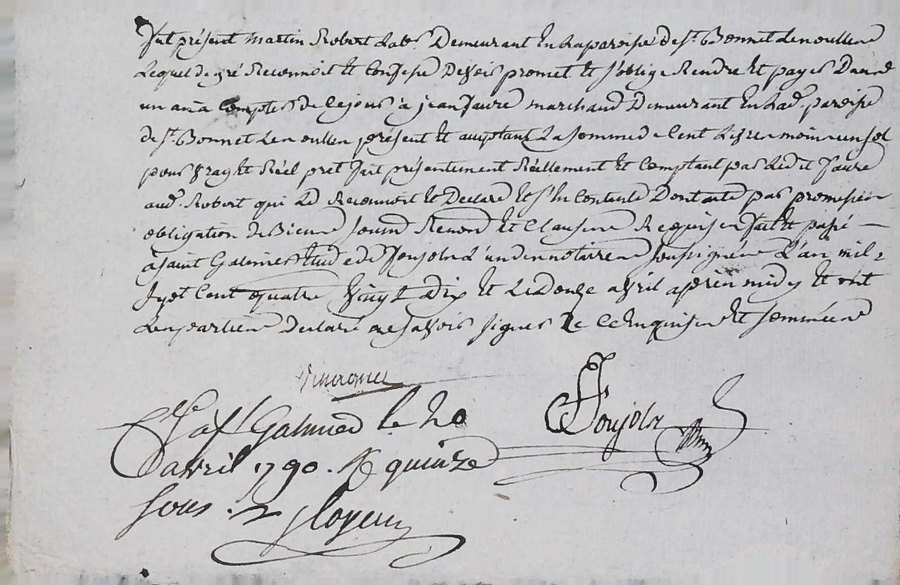 fut présent martin Robert Labr. Demeurant En La paroisse de st. Bonnet Les oulles
Lequel de gré Reconnoit Et Confesse Devoir promet Et s'oblige Rendre Et payer Dans
un an a Compter de Ce jour a jean faure marchand Demeurant En Lad. paroisse
de st. Bonnet Les oulles présent Et acceptant La somme de Cent Livres moins un sol
pour vray Et Réel pret fait présentement Réellement Et Comptant par Ledit faure
aud. Robert qui Le Reconnoit Et Declare Et s'En Contente Dont acte par promission
obligation de Biens soumd. Renond. Et Clauses Requises fait Et passé
a saint Galmier Etude de Soujols L'un des notaires soussignés L'an mil
sept Cent quatre vingt Dix Et Le Douze avril après midy Et ont
Les parties Declaré ne savoir signer De Ce Enquises Et sommées
Soujols
Clé a st. Galmier le 20
avril 1790. R quinze
sous.